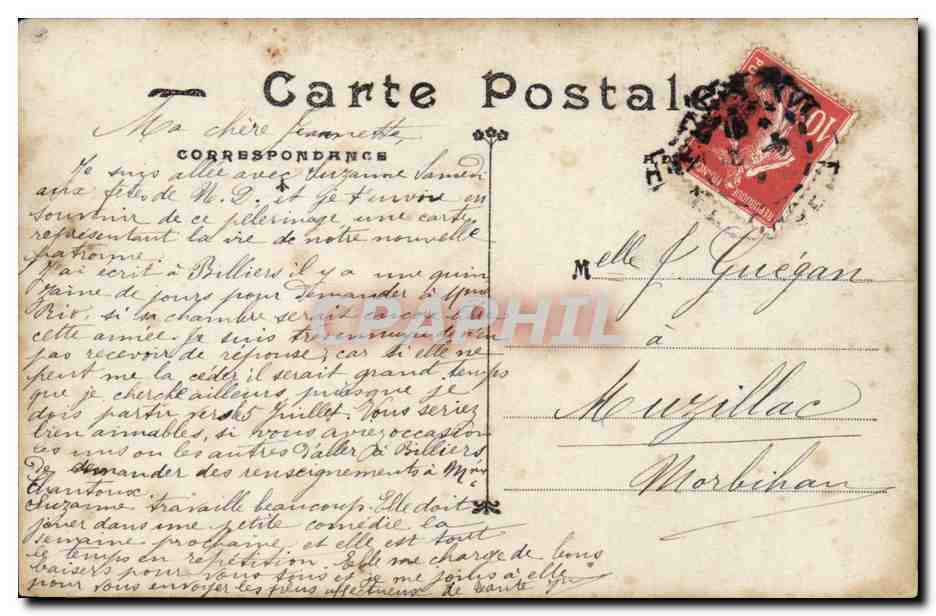 Carte Postale
Ma chère Jeannette,
CORRESPONDANCE
Je suis allée avec Suzanne Samedi
aux fêtes de N. D. et je t'envoie en
souvenir de ce pèlerinage une carte
représentant la vie de notre nouvelle
patronne.
J'ai écrit à Billiers il y a une quin
zaine de jours pour demander à Mme
Rio, si sa chambre serait encore
cette année. Je suis très ennuyée de ne
pas recevoir de réponse, car si elle ne
peut me la céder il serait grand temps
que je cherche ailleurs puisque je
dois partir vers 5 Juillet. Vous seriez
bien aimables, si vous aviez occasion
les uns ou les autres d'aller à Billiers
de demander des renseignements à
Chantoux.
Suzanne travaille beaucoup. Elle doit
jouer dans une petite comédie la
semaine prochaine et elle est tout
le temps en répétition. Elle me charge de bons
baisers pour vous tous et je me joins à elle
pour vous envoyer les plus affectueux de
Melle J. Guégan
à
Muzillac
Morbihan
10
REPUBLIQUE FRANC
CPAPHIL